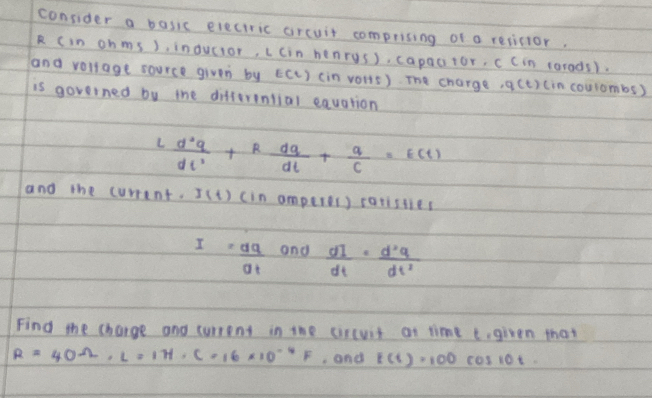 Consider a basic electric circuit comprising of a resistor,
R (in ohms), inductor, L (in henrys), capacitor, C (in farads),
and voltage source given by E(t) (in volts) The charge, q(t) (in coulombs)
is governed by the differential equation
L d²q/dt² + R dq/dt + q/C = E(t)
and the current, I(t) (in amperes) satisfies
I = dq/dt and dI/dt = d²q/dt²
Find the charge and current in the circuit at time t, given that
R = 40Ω, L = 1H, C = 16 × 10⁻⁴ F, and E(t) = 100 cos 10t.